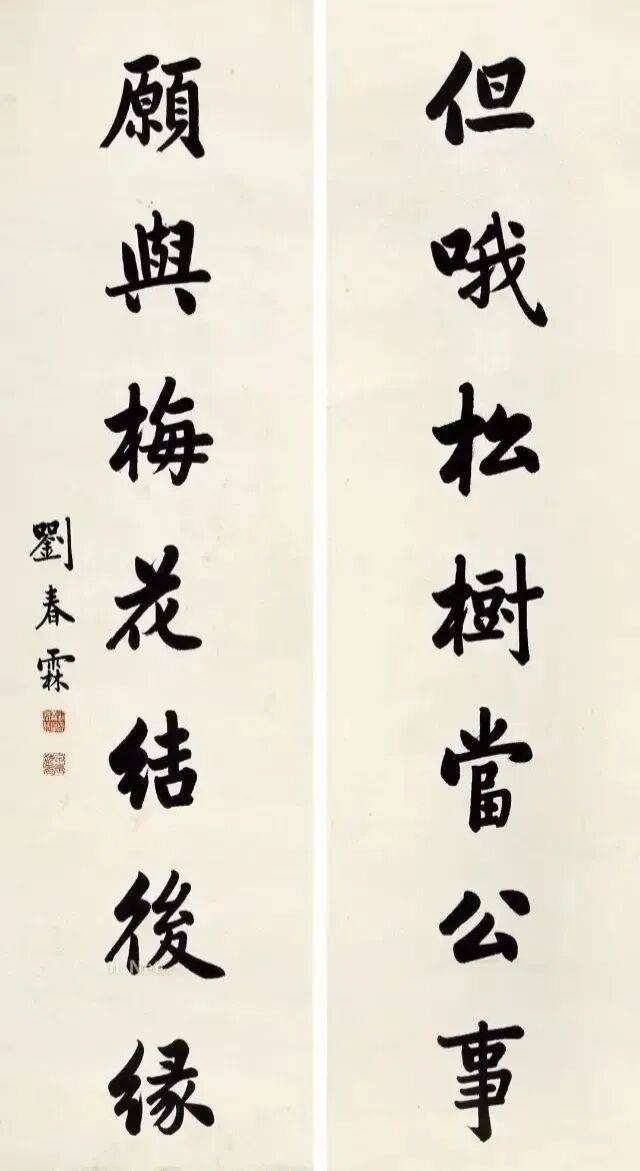 但哦松樹當公事
願與梅花結後緣
劉春霖